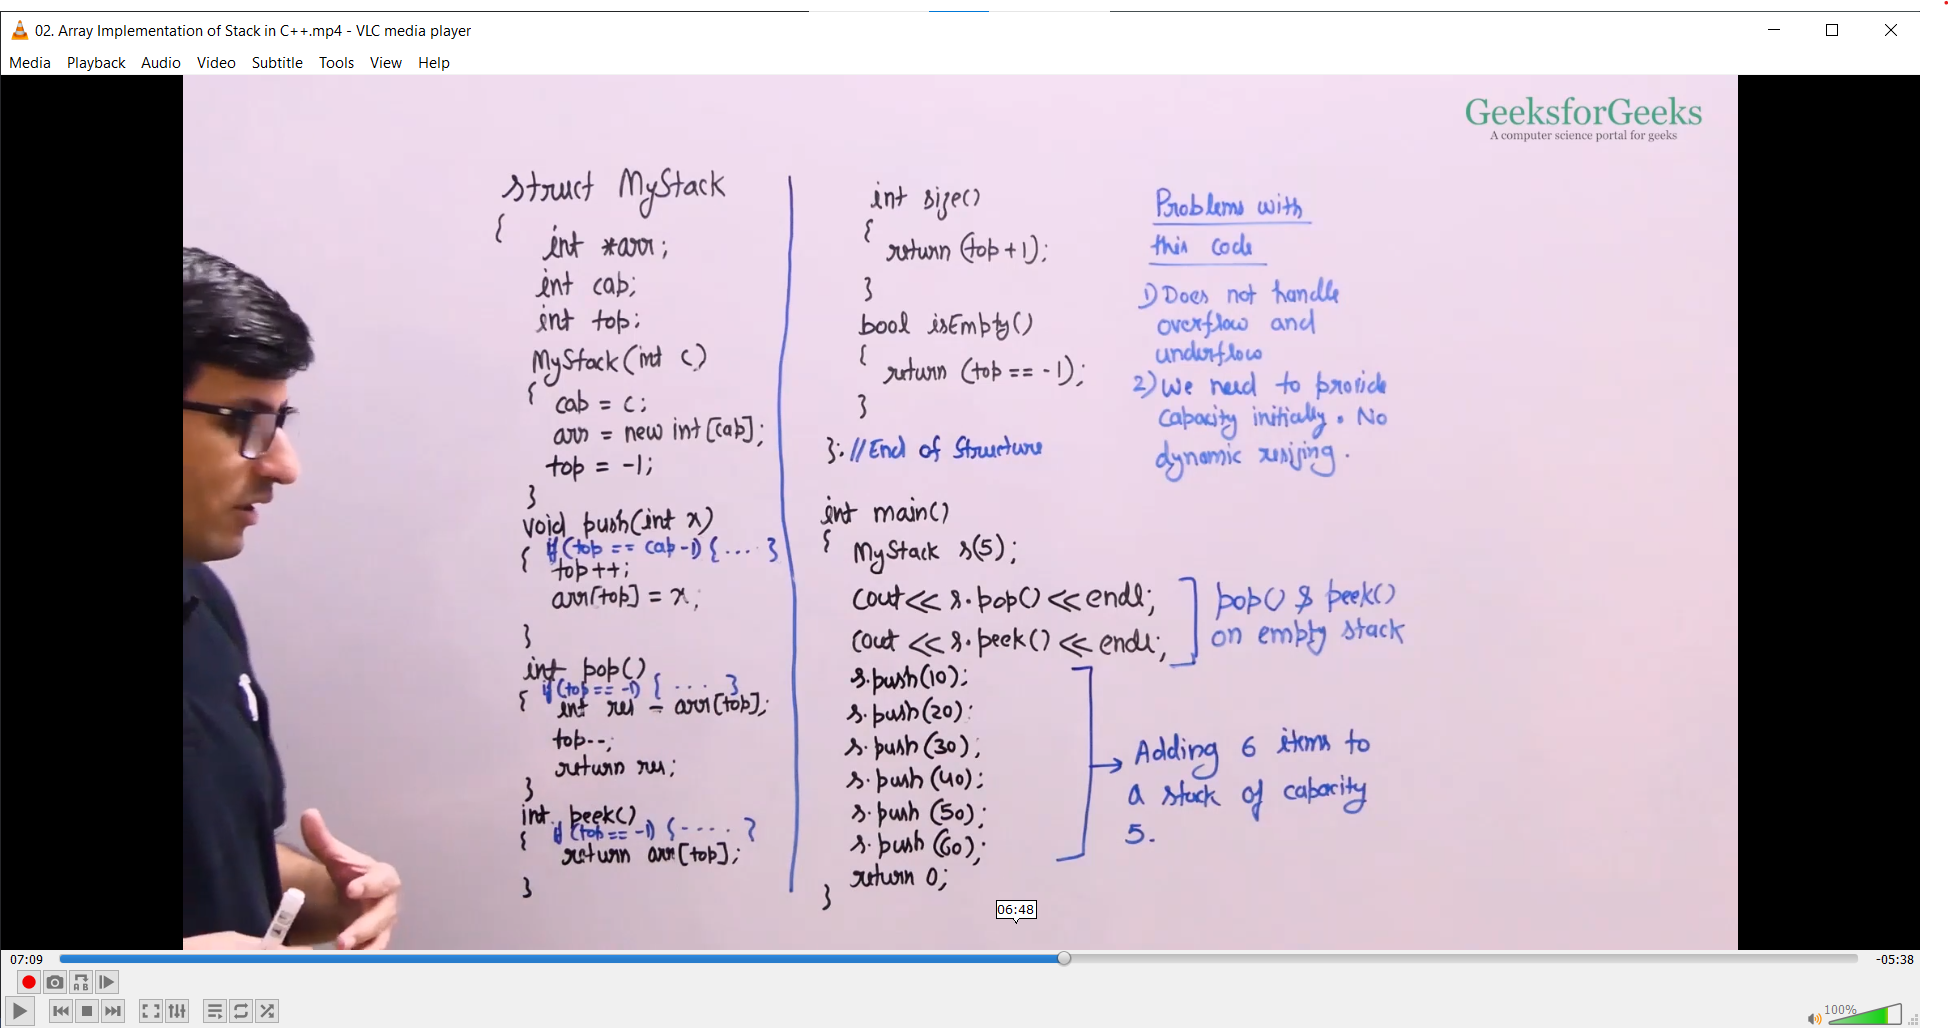 02. Array Implementation of Stack in C++.mp4 - VLC media player
Media Playback Audio Video Subtitle Tools View Help
GeeksforGeeks
A computer science portal for geeks
struct MyStack
{
int *arr;
int cap;
int top;
MyStack(int c)
{ cap = c;
arr = new int[cap];
top = -1;
}
void push(int x)
{ if(top == cap-1) { .... }
top++;
arr[top] = x;
}
int pop()
{ if(top == -1) { .... }
int res = arr[top];
top--;
return res;
}
int peek()
{ if(top == -1) { ..... }
return arr[top];
}
int size()
{
return (top+1);
}
bool isEmpty()
{
return (top == -1);
}
}; //End of Structure
int main()
{ MyStack s(5);
cout << s.pop() << endl;
cout << s.peek() << endl;
s.push(10);
s.push(20);
s.push(30);
s.push(40);
s.push(50);
s.push(60);
return 0;
}
Problems with
this code
1) Does not handle
overflow and
underflow
2) We need to provide
capacity initially. No
dynamic resizing.
pop() & peek()
on empty stack
Adding 6 items to
a stack of capacity
5.
06:48
07:09
-05:38
A B
100%